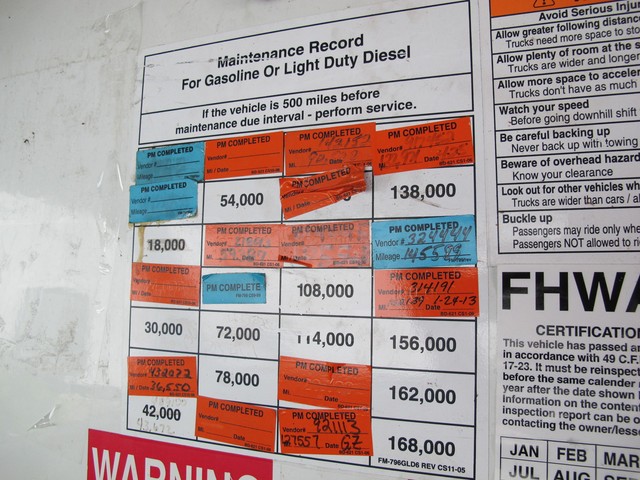 Maintenance Record
For Gasoline Or Light Duty Diesel
If the vehicle is 500 miles before
maintenance due interval - perform service.
PM COMPLETED
Vendor #
Mileage
PM COMPLETED
Vendor#
MI. / Date
PM COMPLETED
Vendor#
MI. Date
PM COMPLETED
PM COMPLETED
Vendor #
Mileage
54,000
PM COMPLETED
Vendor#
MI / Date
138,000
18,000
PM COMPLETED
Vendor#
PM COMPLETED
PM COMPLETED
Vendor # 324444
Mileage 145589
PM COMPLETED
Vendor#
MI. / Date
PM COMPLETE
108,000
PM COMPLETED
314191
1-24-13
30,000
72,000
114,000
156,000
PM COMPLETED
Vendor# 432072
MI. 36,550
78,000
PM COMPLETED
Vendor#
MI. Date
162,000
42,000
PM COMPLETED
Vendor#
MI. Date
PM COMPLETED
Vendor# 921113
127557 Date GZ
168,000
FM-796GLD6 REV CS11-05
WARNING
Avoid Serious Injur
Allow greater following distanc
Trucks need more space to sto
Allow plenty of room at the s
Trucks are wider and longer
Allow more space to acceler
Trucks don't have as much
Watch your speed
Before going downhill shift
Be careful backing up
Never back up with towing
Beware of overhead hazard
Know your clearance
Look out for other vehicles wh
Trucks are wider than cars / al
Buckle up
Passengers may ride only whe
Passengers NOT allowed to r
FHWA
CERTIFICATIO
This vehicle has passed a
in accordance with 49 C.F.
17-23. It must be reinspect
before the same calender
year after the date shown
information on the conten
inspection report can be o
contacting the owner/lesse
JAN FEB MAR
JUL AUG SE